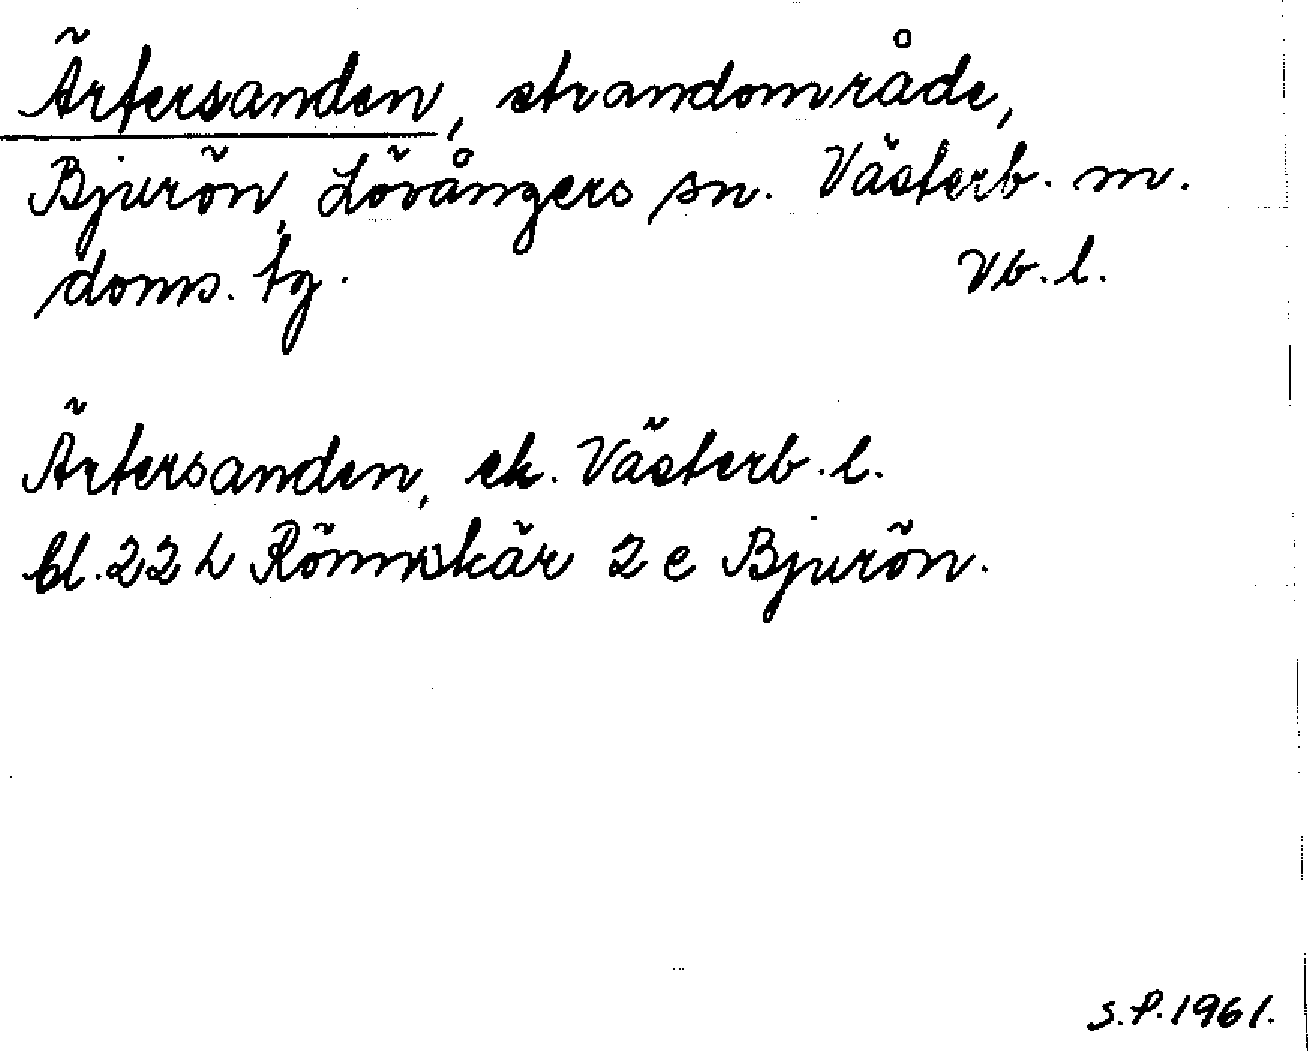 Ärtersanden, strandområde,
Bjurön, Lövångers sn. Västerb. m.
doms. tg. Vb. l.
Ärtersanden, ek. Västerb. l.
bl. 22 L Rönnskär 2 e Bjurön.
S.P. 1961.